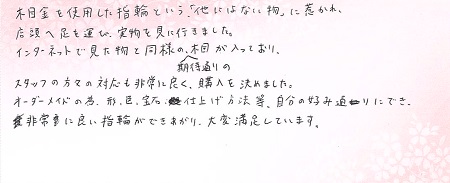 木目金を使用した指輪という、「他にはない物」に惹かれ、
店頭へ足を運び、実物を見に行きました。
インターネットで見た物と同様の、木目が入っており、
期待通りの
スタッフの方々の対応も非常に良く、購入を決めました。
オーダーメイドの為、形、色、宝石、仕上げ方法等、自分の好み通りにでき、
非常に良い指輪ができあがり、大変満足しています。